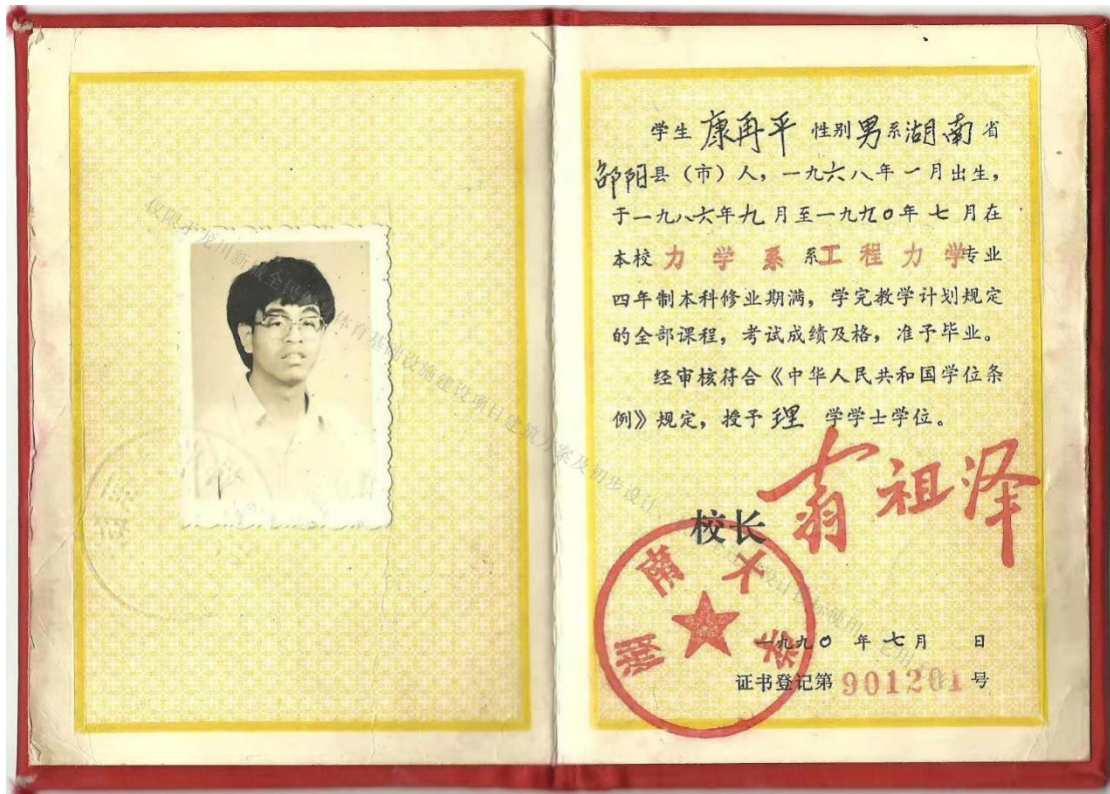 学生 康再平 性别男系湖南省
邵阳县（市）人，一九六八年一月出生，
于一九八六年九月至一九九0年七月在
本校 力学系 系工程力学专业
四年制本科修业期满，学完教学计划规定
的全部课程，考试成绩及格，准予毕业。
经审核符合《中华人民共和国学位条
例》规定，授予 理 学学士学位。
校长 翁祖泽
湖南大学
一九九0年七月 日
证书登记第901201号